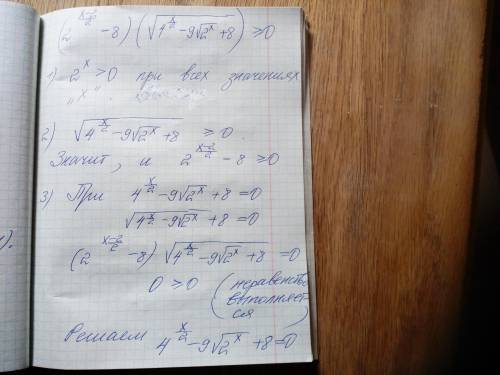 (2^{\frac{x-2}{2}} - 8)(\sqrt{4^{\frac{x}{2}} - 9\sqrt{2^x} + 8}) ≥ 0
1) 2^x > 0 при всех значениях
„x".
2) \sqrt{4^{\frac{x}{2}} - 9\sqrt{2^x} + 8} ≥ 0.
Значит, и 2^{\frac{x-2}{2}} - 8 ≥ 0
3) При 4^{\frac{x}{2}} - 9\sqrt{2^x} + 8 = 0
\sqrt{4^{\frac{x}{2}} - 9\sqrt{2^x} + 8} = 0
(2^{\frac{x-2}{2}} - 8)\sqrt{4^{\frac{x}{2}} - 9\sqrt{2^x} + 8} = 0
0 ≥ 0 (неравенство
выполняет-
ся)
Решаем 4^{\frac{x}{2}} - 9\sqrt{2^x} + 8 = 0
).